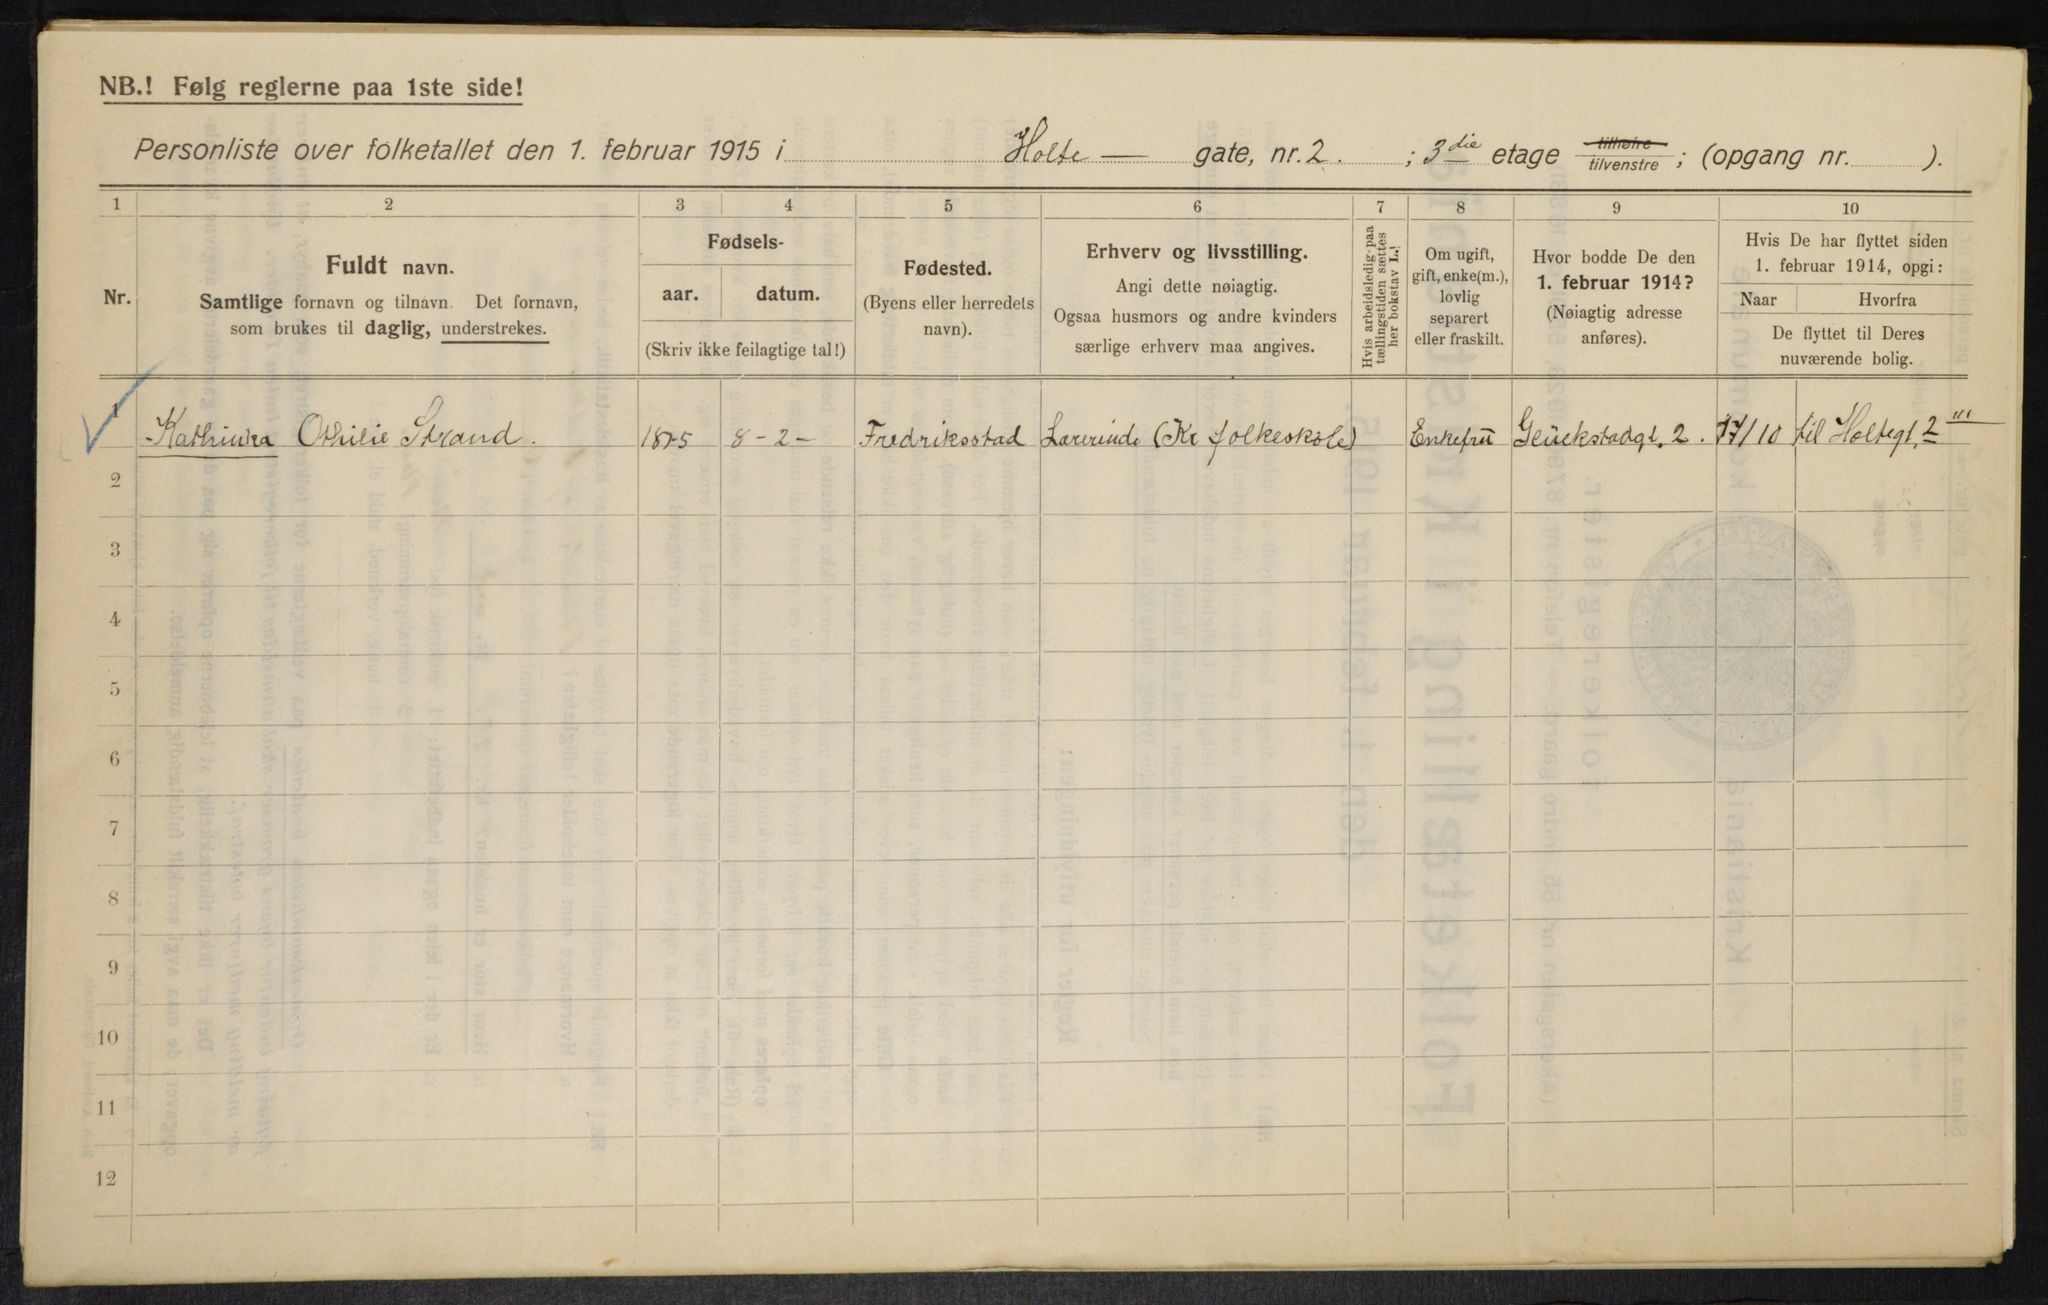 NB.! Følg reglerne paa 1ste side!
Personliste over folketallet den 1. februar 1915 i Holte — gate, nr. 2. ; 3die etage tilhøire tilvenstre; (opgang nr. ).
1 2 3 4 5 6 7 8 9 10
Nr.
Fuldt navn.
Samtlige fornavn og tilnavn. Det fornavn,
som brukes til daglig, understrekes.
Fødsels-
aar. datum.
(Skriv ikke feilagtige tal!)
Fødested.
(Byens eller herredets
navn).
Erhverv og livsstilling.
Angi dette nøiagtig.
Ogsaa husmors og andre kvinders
særlige erhverv maa angives.
Hvis arbeidsledig paa
tællingstiden sættes
her bokstav L.!
Om ugift,
gift, enke(m.),
lovlig
separert
eller fraskilt.
Hvor bodde De den
1. februar 1914?
(Nøiagtig adresse
anføres).
Hvis De har flyttet siden
1. februar 1914, opgi:
Naar Hvorfra
De flyttet til Deres
nuværende bolig.
1 Kathinka Othilie Strand. 8-2- Fredriksstad Lærerinde (Kr folkeskole) Enkefru Glückstadgt. 2. /10 til Holtegt. 2 III
2
3
4
5
6
7
8
9
10
11
12